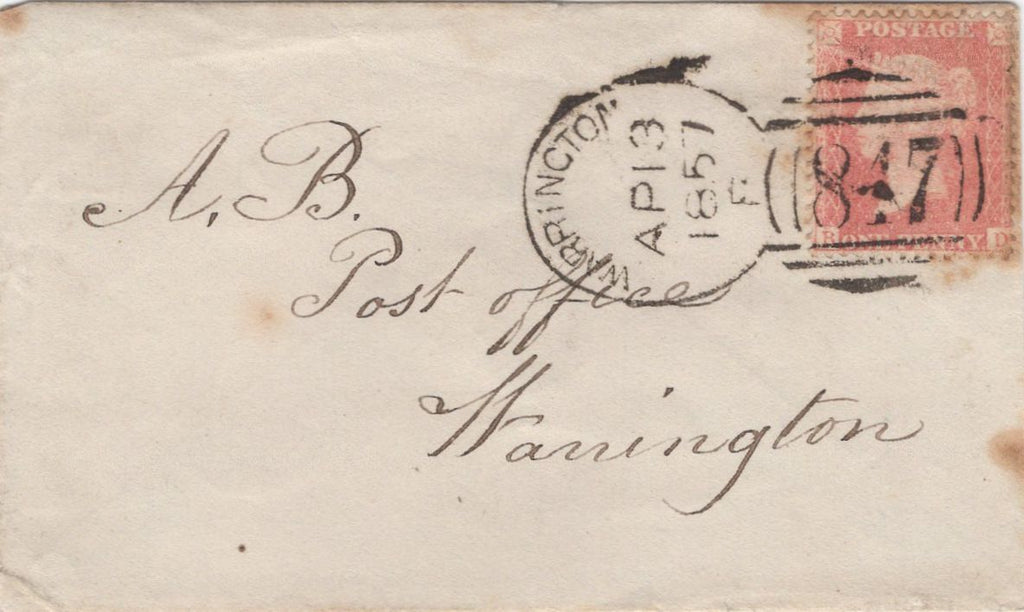 POSTAGE
847
R ONE PENNY. D
WARRINGTON
AP 13
1857
F
A. B.
Post office
Warrington